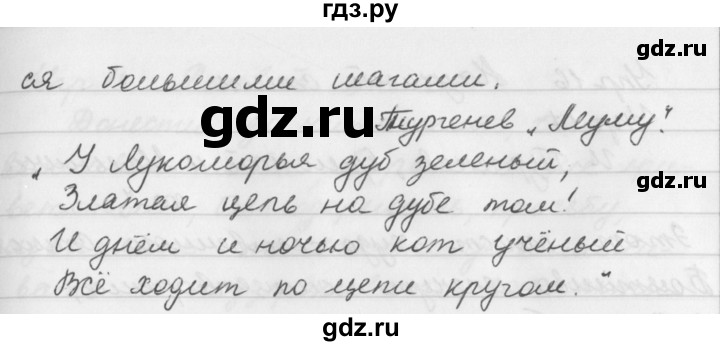 гдз.ру
gdz.ru
ся большими шагами.
gdz.ru
gdz.ru
Тургенев „Муму".
„У Лукоморья дуб зеленый,
gdz.ru
Златая цепь на дубе том!
И днём и ночью кот учёный
Всё ходит по цепи кругом."
gdz.ru
gdz.ru